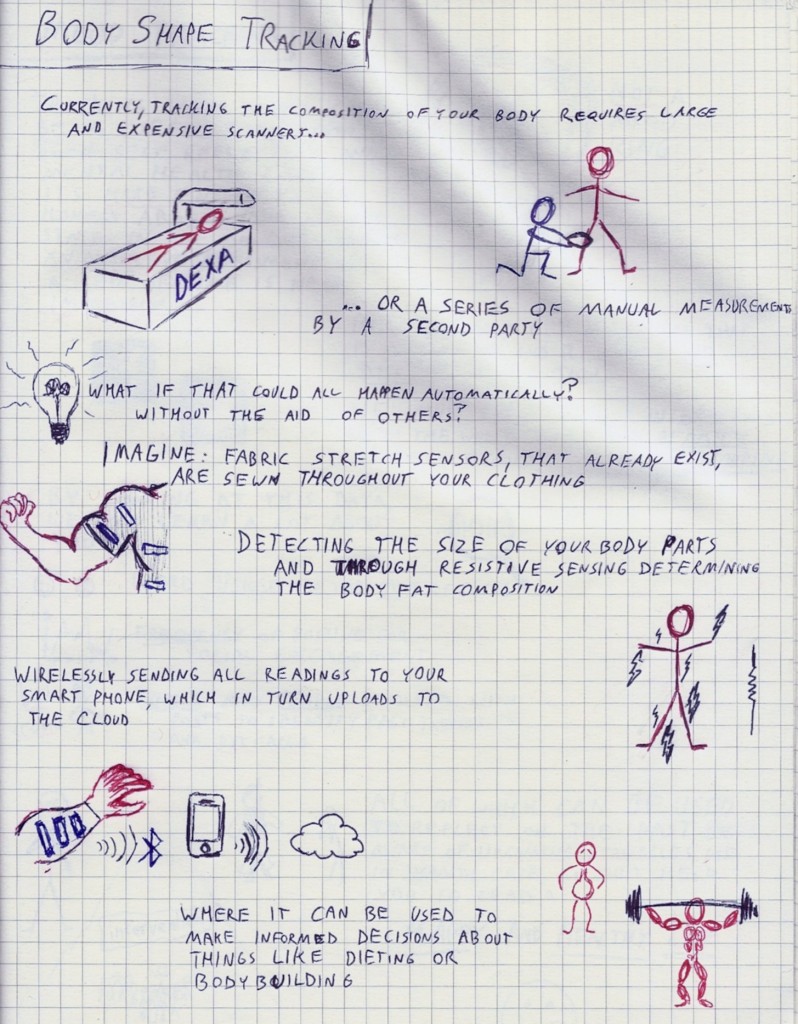 BODY SHAPE TRACKING
CURRENTLY, TRACKING THE COMPOSITION OF YOUR BODY REQUIRES LARGE
AND EXPENSIVE SCANNERS...
DEXA
... OR A SERIES OF MANUAL MEASUREMENTS
BY A SECOND PARTY
WHAT IF THAT COULD ALL HAPPEN AUTOMATICALLY?
WITHOUT THE AID OF OTHERS?
IMAGINE: FABRIC STRETCH SENSORS, THAT ALREADY EXIST,
ARE SEWN THROUGHOUT YOUR CLOTHING
DETECTING THE SIZE OF YOUR BODY PARTS
AND THROUGH RESISTIVE SENSING DETERMINING
THE BODY FAT COMPOSITION
WIRELESSLY SENDING ALL READINGS TO YOUR
SMART PHONE, WHICH IN TURN UPLOADS TO
THE CLOUD
WHERE IT CAN BE USED TO
MAKE INFORMED DECISIONS ABOUT
THINGS LIKE DIETING OR
BODYBUILDING